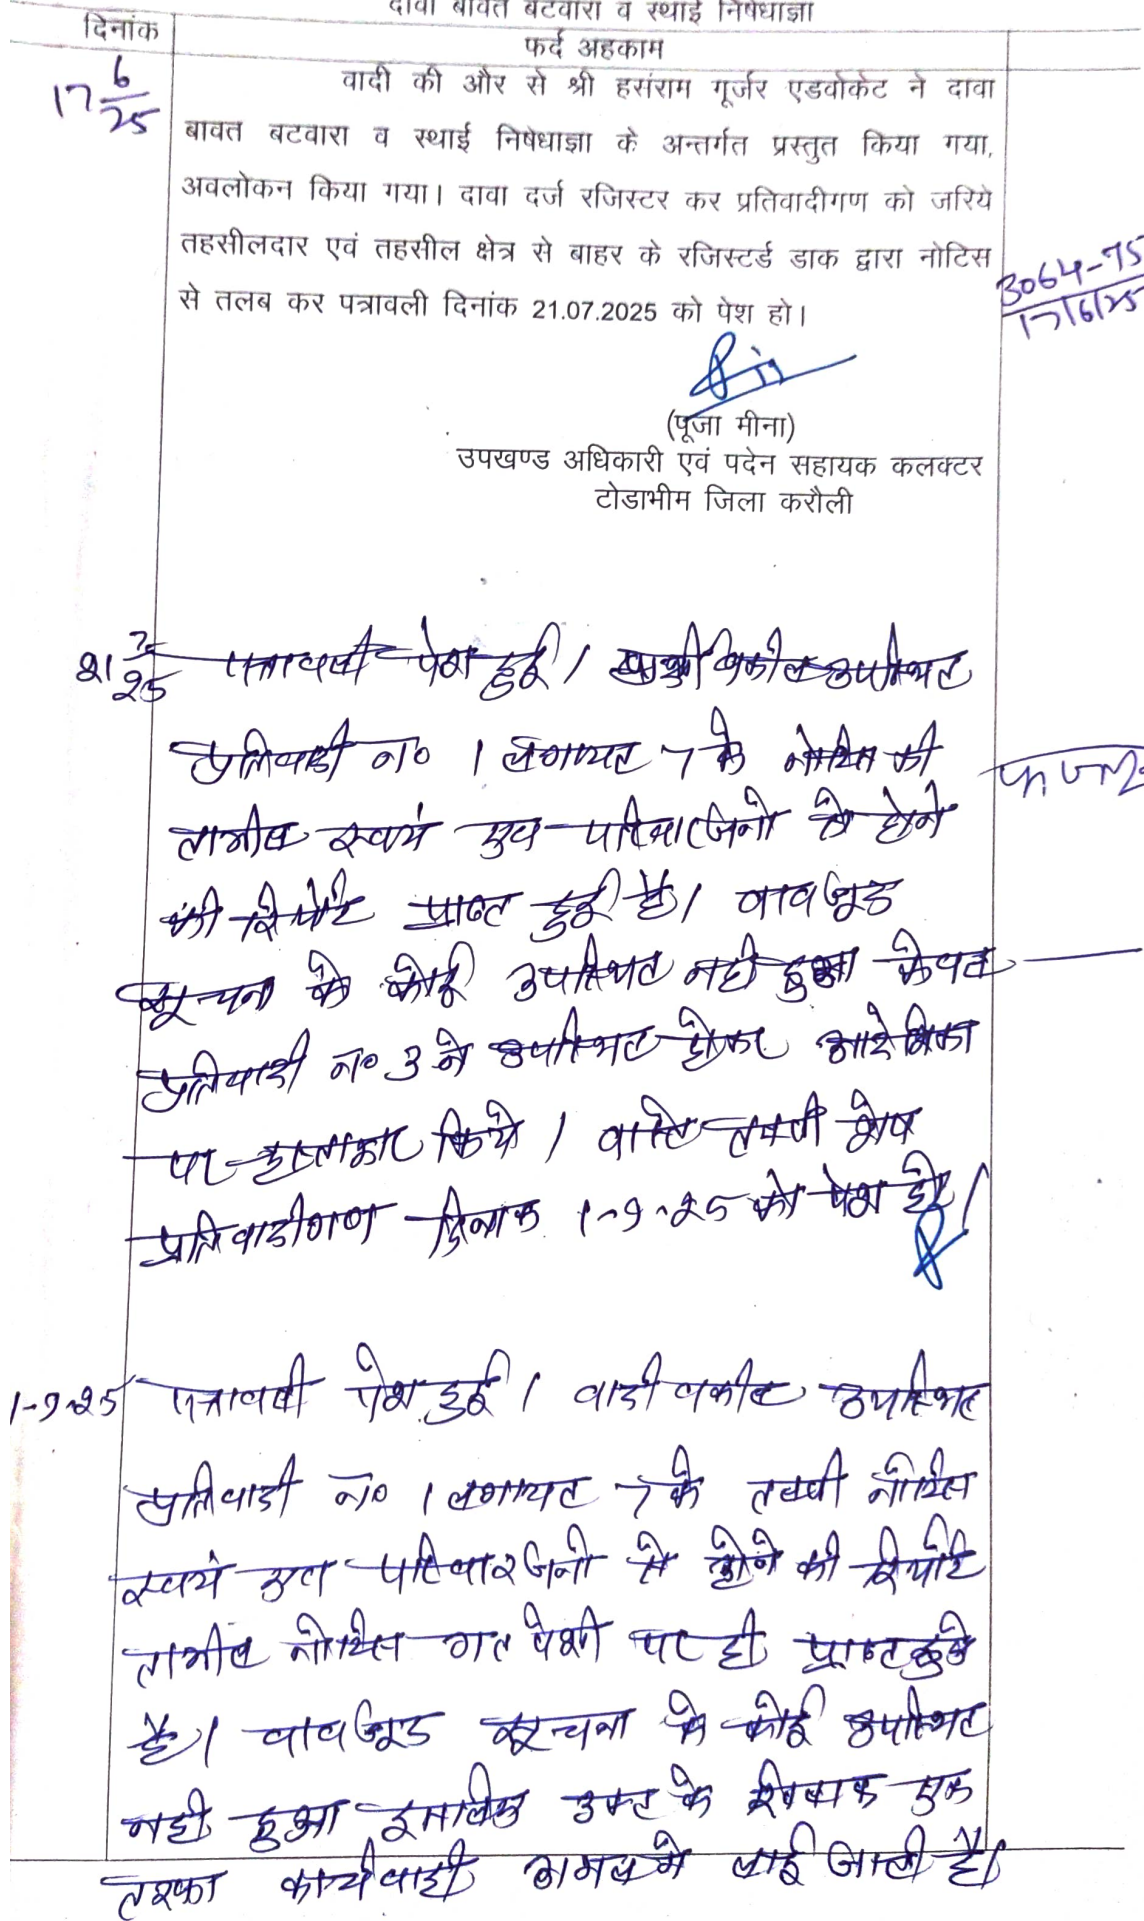 दावा बावत बटवारा व स्थाई निषेधाज्ञा
दिनांक
फर्द अहकाम
17 6/25
वादी की और से श्री हसंराम गूर्जर एडवोकेट ने दावा
बावत बटवारा व स्थाई निषेधाज्ञा के अन्तर्गत प्रस्तुत किया गया,
अवलोकन किया गया। दावा दर्ज रजिस्टर कर प्रतिवादीगण को जरिये
तहसीलदार एवं तहसील क्षेत्र से बाहर के रजिस्टर्ड डाक द्वारा नोटिस
से तलब कर पत्रावली दिनांक 21.07.2025 को पेश हो।
3064-75
17/6/25
(पूजा मीना)
उपखण्ड अधिकारी एवं पदेन सहायक कलक्टर
टोडाभीम जिला करौली
21 7/25 पत्रावली पेश हुई। वकील उपस्थित
प्रतिवादी न० 1 लगायत 7 के नोटिस की
तामील स्वयं एव परिवारजिनो से होने
की रिपोर्ट प्राप्त हुई है। वावजूद
सूचना के कोई उपस्थित नही हुआ केवल
प्रतिवादी न० 3 ने उपस्थित होकर आदेशिका
पर हस्ताक्षर किये। वास्ते तलवी शेष
प्रतिवादीगण दिनाक 1-9-25 को पेश हो।
1-9-25 पत्रावली पेश हुई। वादी वकील उपस्थित
प्रतिवादी न० 1 लगायत 7 के तलवी नोटिस
स्वयं एव परिवारजिनो से होने की रिपोर्ट
तामील नोटिस गत पेशी पर ही प्राप्त हुई
है। वावजूद सूचना के कोई उपस्थित
नही हुआ इसलिए उक्त के खिलाफ एक
तरफा कार्यवाही अमल मे लाई जाती है।